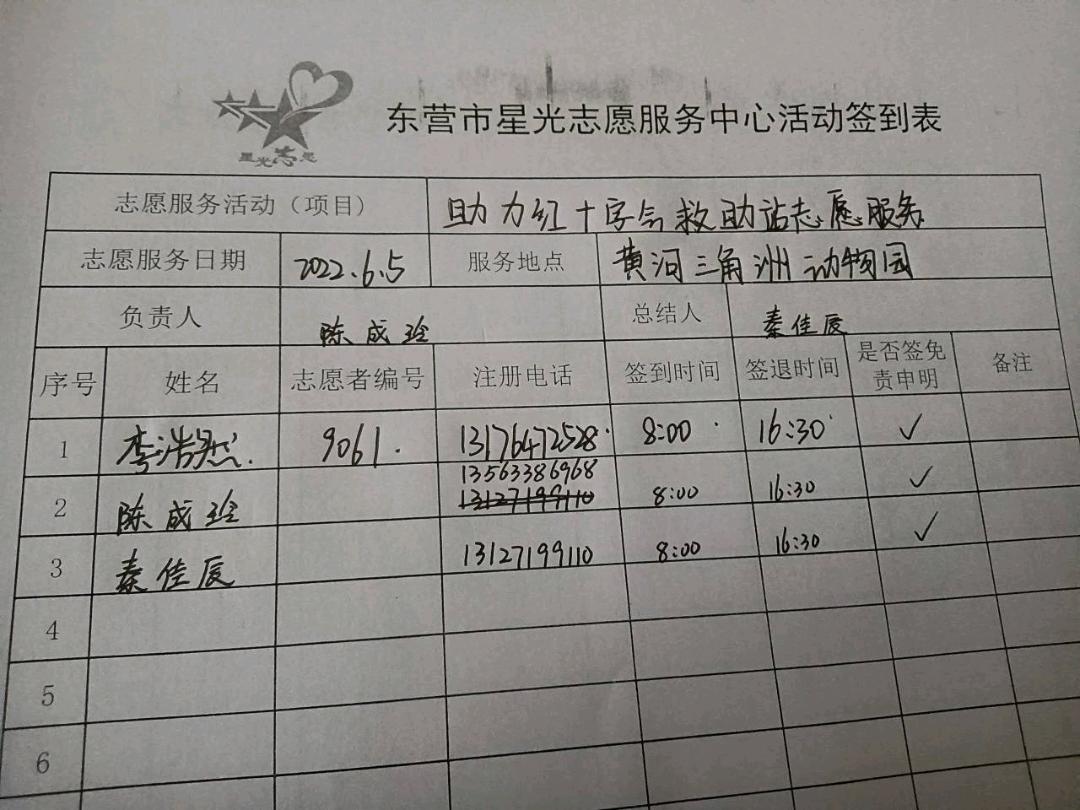 星光志愿
东营市星光志愿服务中心活动签到表
志愿服务活动（项目） 助力红十字会救助站志愿服务
志愿服务日期 2022.6.5 服务地点 黄河三角洲动物园
负责人 陈成玲 总结人 秦佳辰
序号 姓名 志愿者编号 注册电话 签到时间 签退时间 是否签免责申明 备注
1 李浩然. 9061. 13176472528. 8:00 16:30 ✓
2 陈成玲 13563386968 13127199110 8:00 16:30 ✓
3 秦佳辰 13127199110 8:00 16:30 ✓
4
5
6